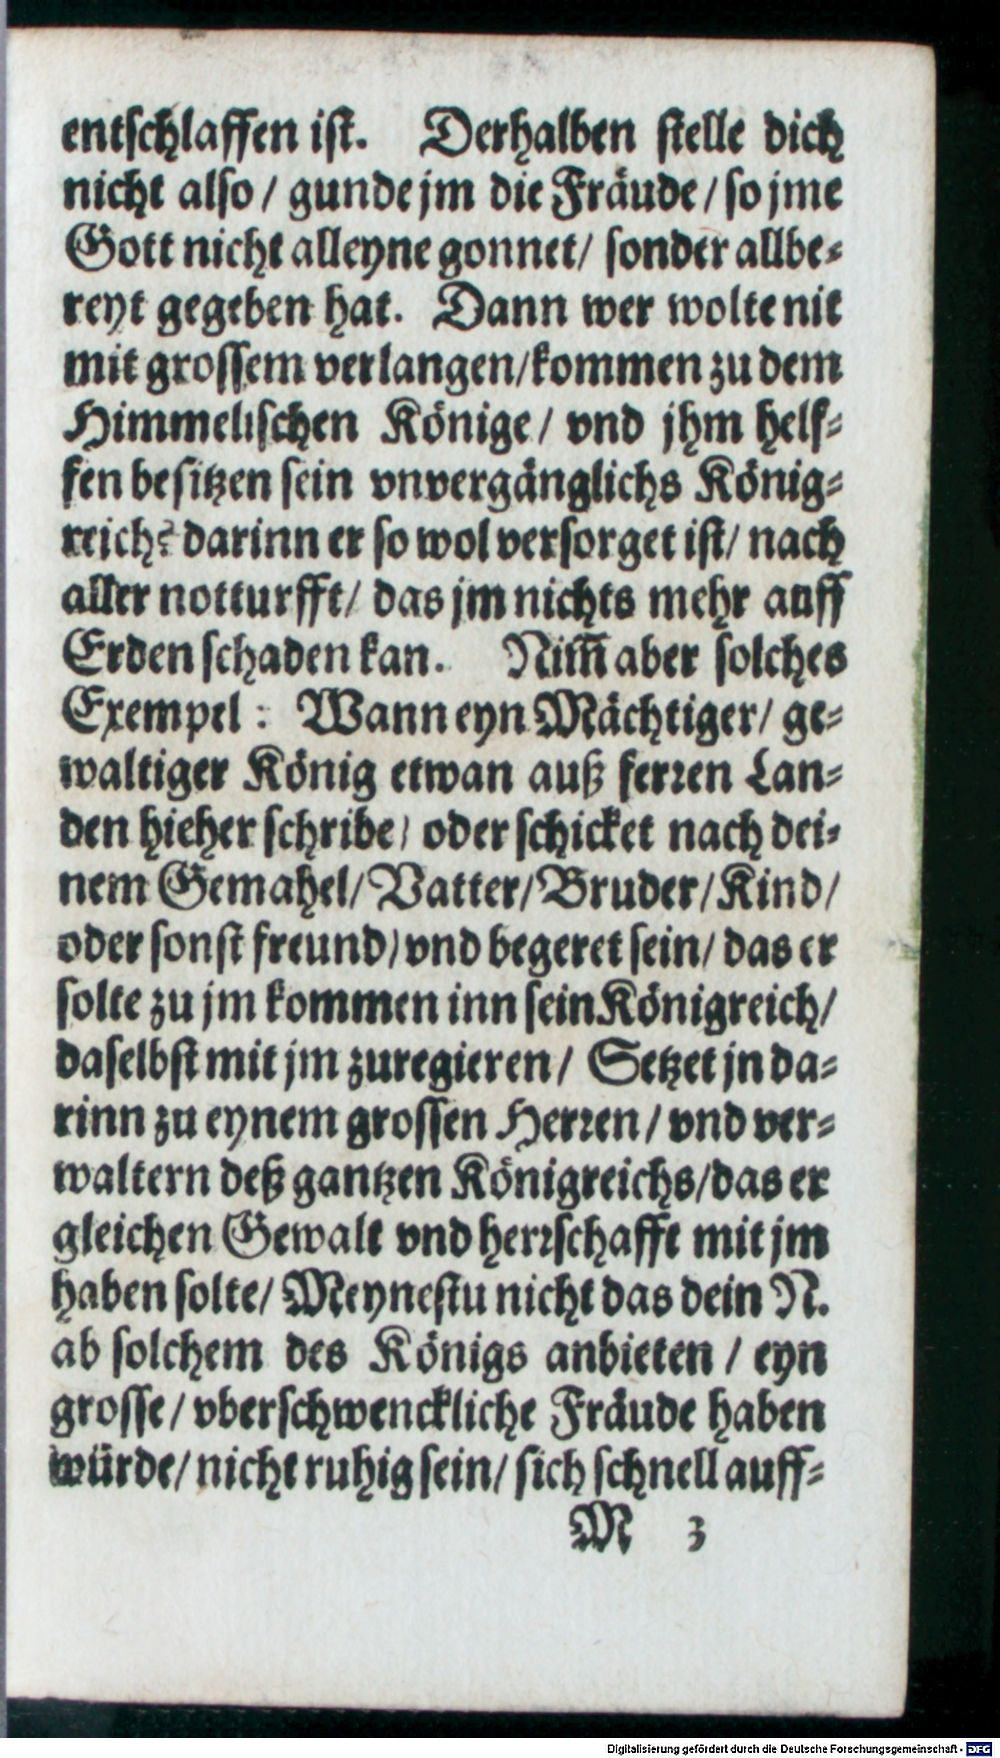 entschlaffen ist. Derhalben stelle dich
nicht also / gunde jm die Fräude / so jme
Gott nicht alleyne gonnet / sonder allbe-
reyt gegeben hat. Dann wer wolte nit
mit grossem verlangen / kommen zu dem
Himmelischen Könige / vnd jhm helf-
fen besitzen sein vnvergänglichs König-
reich? darinn er so wol versorget ist / nach
aller notturfft / das jm nichts mehr auff
Erden schaden kan. Nim̃ aber solches
Exempel : Wann eyn Mächtiger / ge-
waltiger König etwan auß ferren Lan-
den hieher schribe / oder schicket nach dei-
nem Gemahel / Vatter / Bruder / Kind /
oder sonst freund / vnd begeret sein / das er
solte zu jm kommen inn sein Königreich /
daselbst mit jm zuregieren / Setzet jn da-
rinn zu eynem grossen Herren / vnd ver-
waltern deß gantzen Königreichs / das er
gleichen Gewalt vnd herrschafft mit jm
haben solte / Meynestu nicht das dein N.
ab solchem des Königs anbieten / eyn
grosse / vberschwenckliche Fräude haben
würde / nicht ruhig sein / sich schnell auff-
M 3
Digitalisierung gefördert durch die Deutsche Forschungsgemeinschaft - DFG